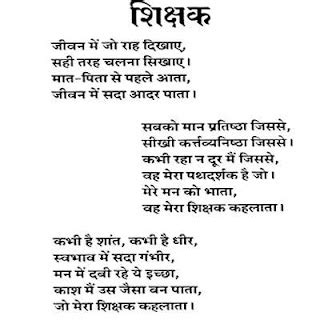 शिक्षक
जीवन में जो राह दिखाए,
सही तरह चलना सिखाए।
मात-पिता से पहले आता,
जीवन में सदा आदर पाता।
सबको मान प्रतिष्ठा जिससे,
सीखी कर्त्तव्यनिष्ठा जिससे।
कभी रहा न दूर मैं जिससे,
वह मेरा पथदर्शक है जो।
मेरे मन को भाता,
वह मेरा शिक्षक कहलाता।
कभी है शांत, कभी है धीर,
स्वभाव में सदा गंभीर,
मन में दबी रहे ये इच्छा,
काश मैं उस जैसा बन पाता,
जो मेरा शिक्षक कहलाता।